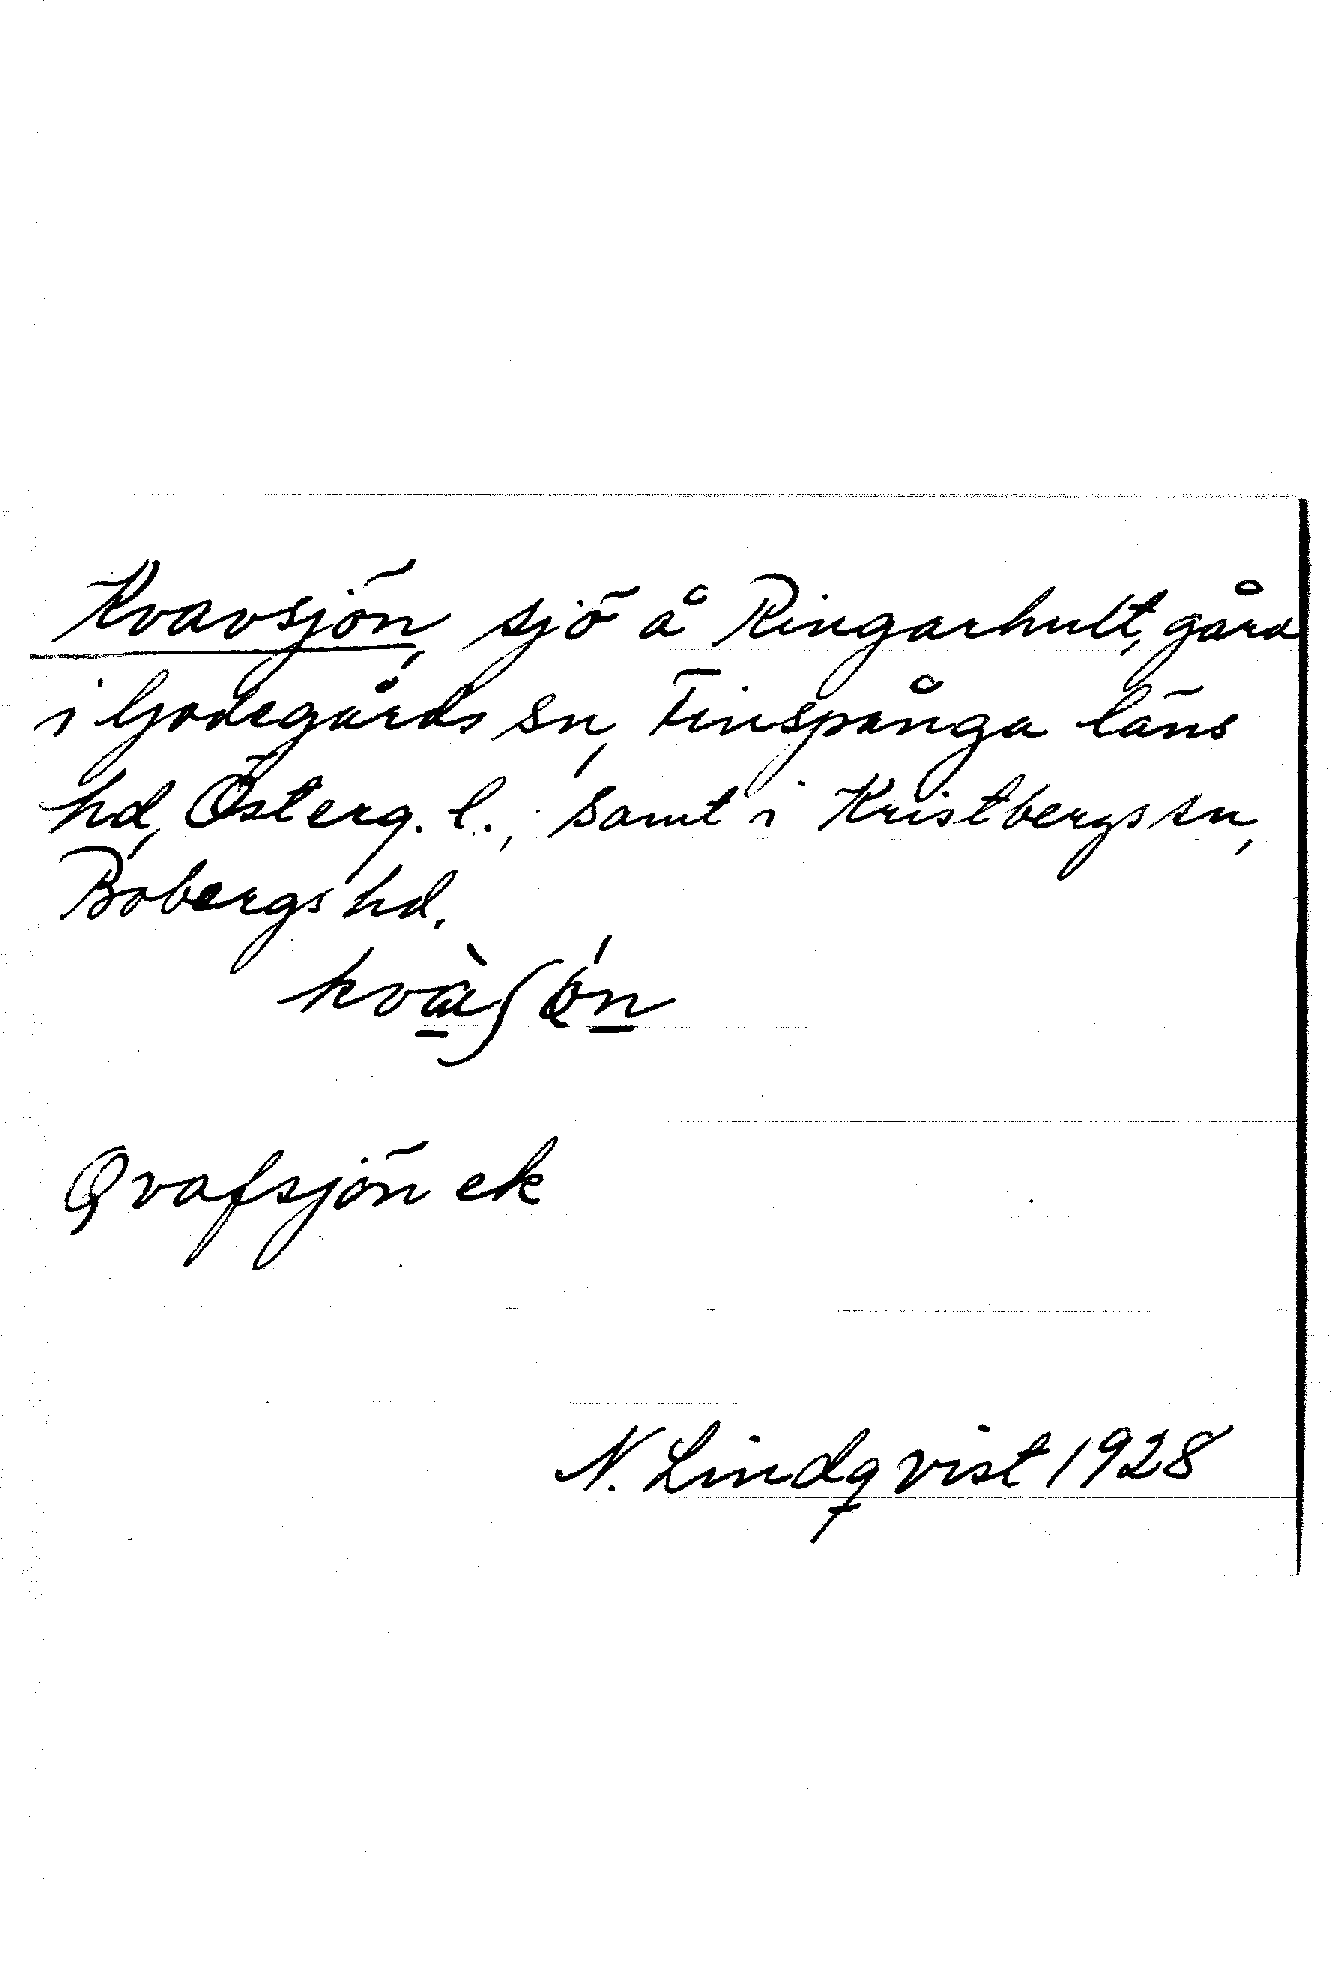 Kvavsjön, sjö å Ringarhult, gård
i Godegårds sn, Finspånga läns
hd, Österg. l., samt i Kristbergs sn,
Bobergs hd.
Qvafsjön ek
N. Lindqvist 1928